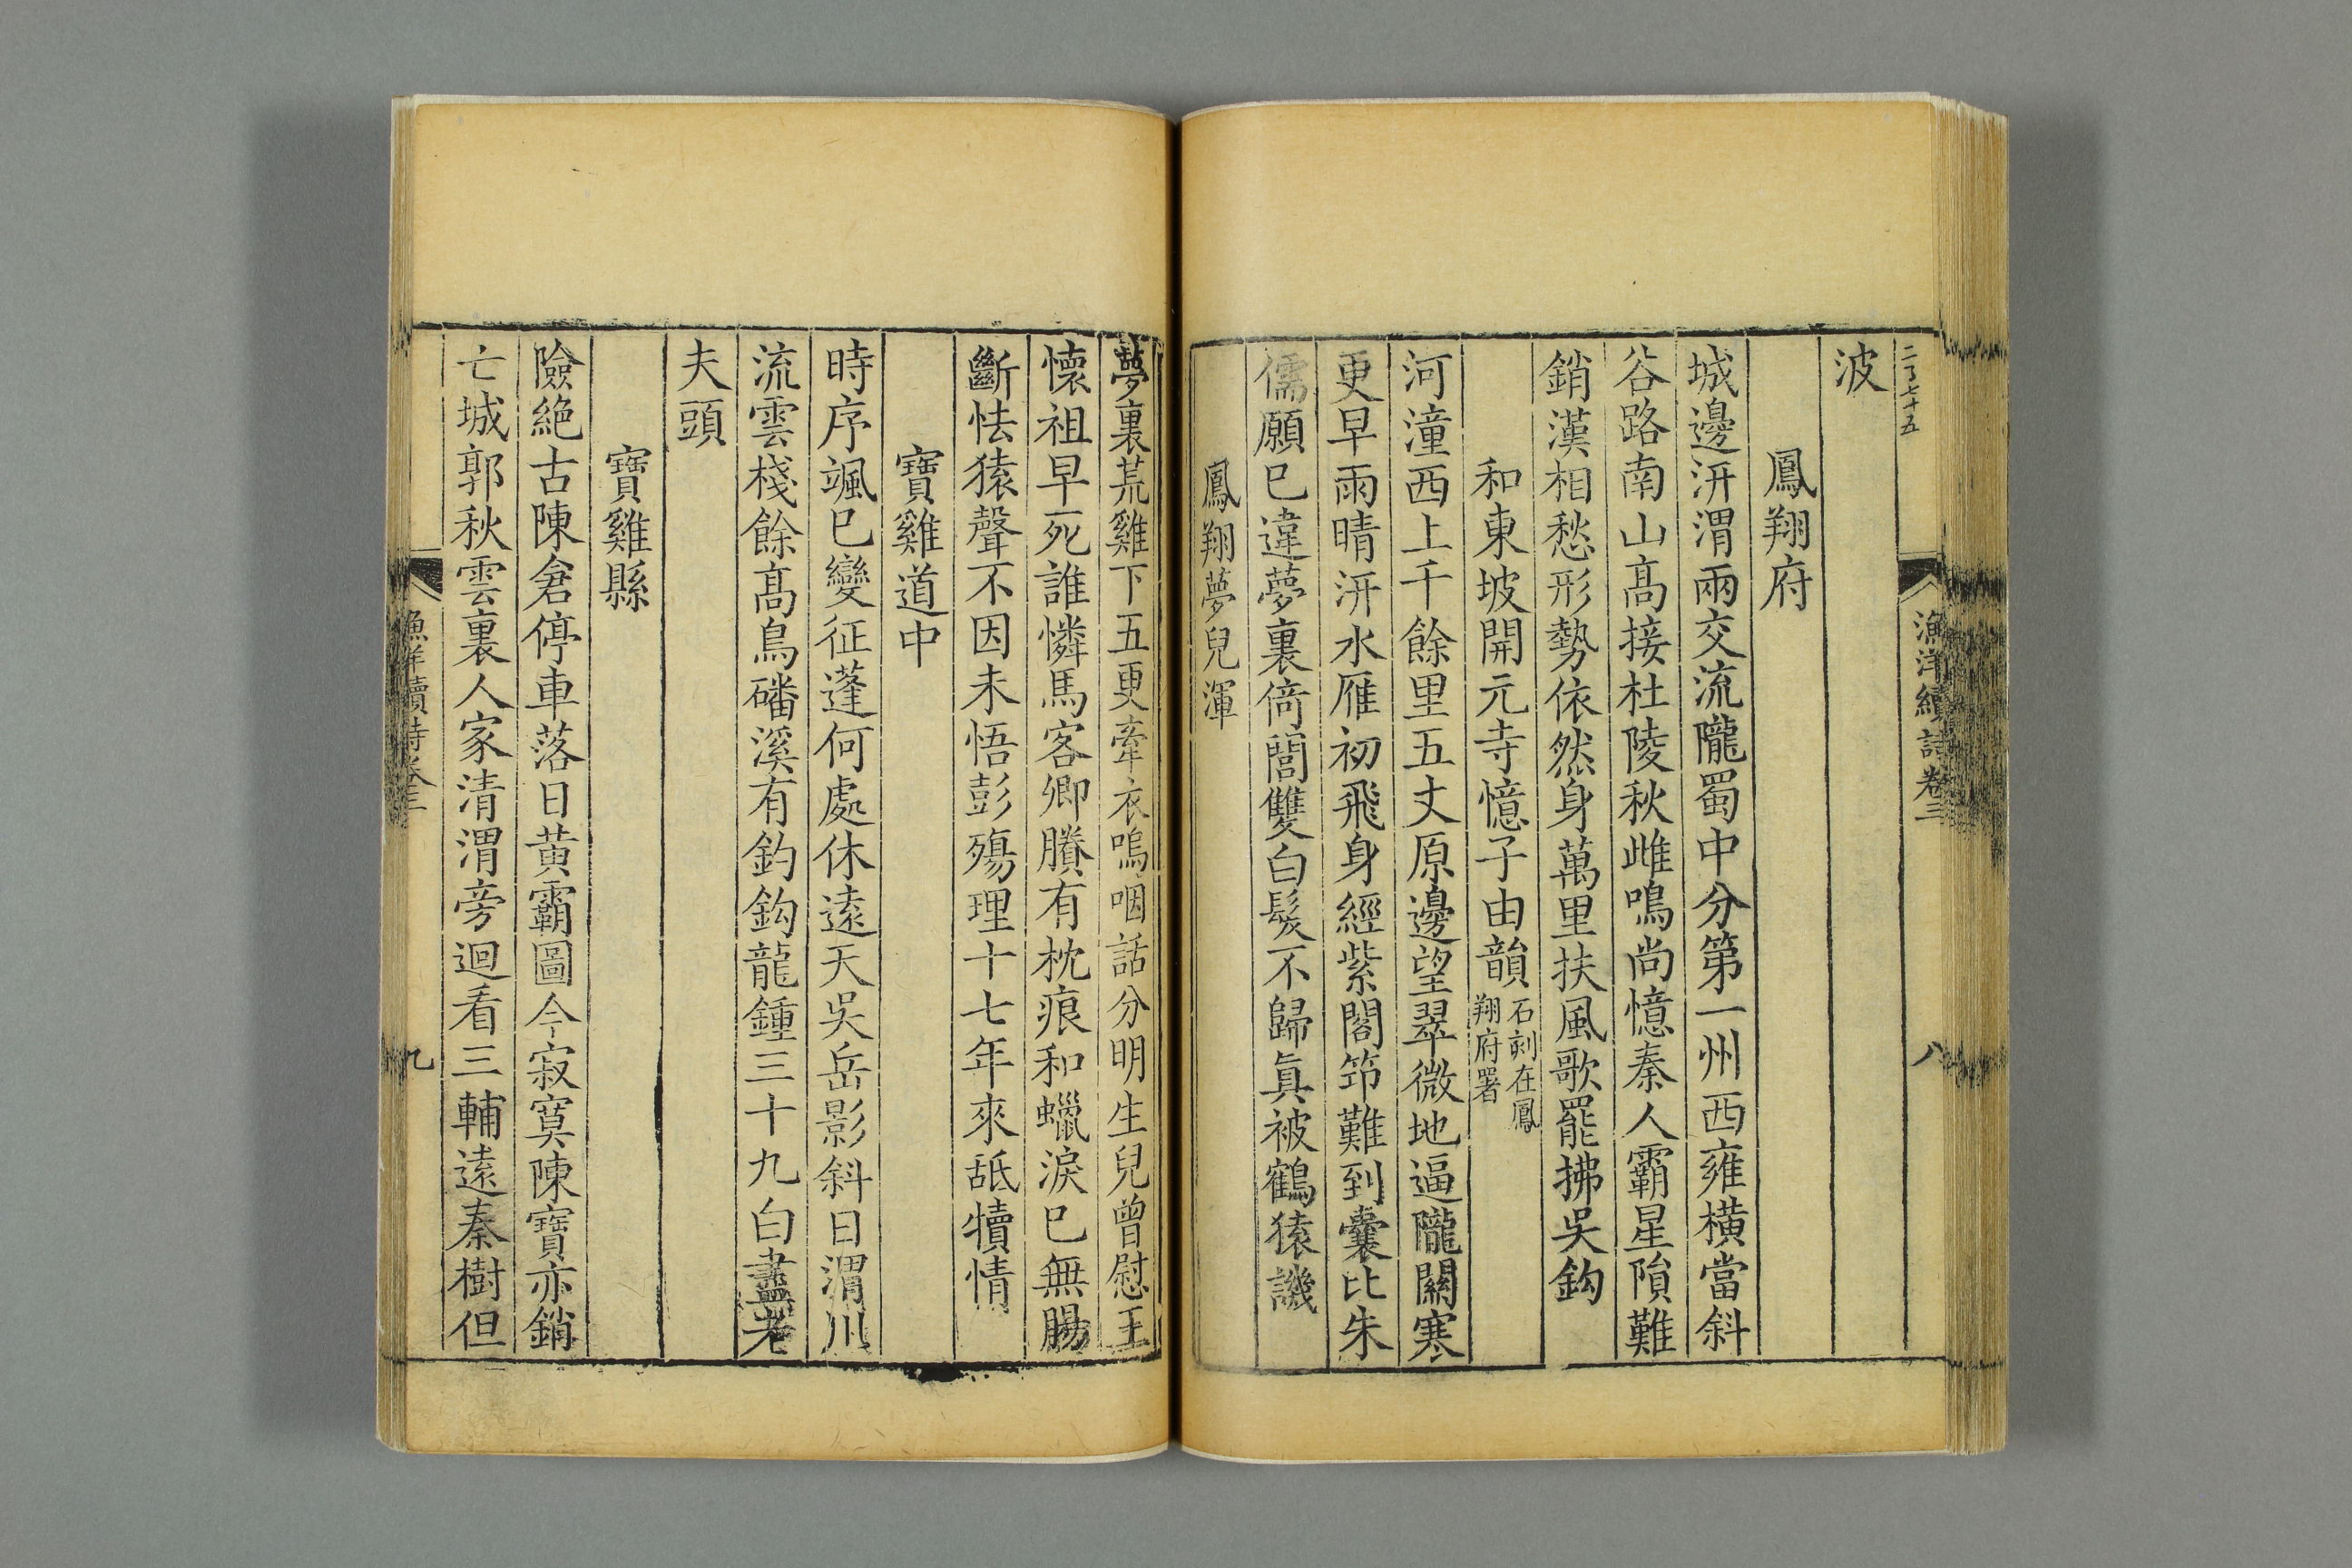 二丁七十五
漁洋續詩卷三
八
波
鳳翔府
城邊汧渭兩交流隴蜀中分第一州西雍橫當斜
谷路南山髙接杜陵秋雌鳴尚憶秦人霸星隕難
銷漢相愁形勢依然身萬里扶風歌罷拂吳鈎
和東坡開元寺憶子由韻
石刻在鳳
翔府署
河潼西上千餘里五丈原邊望翠微地逼隴關寒
更早雨晴汧水雁初飛身經紫閣笻難到囊比朱
儒願巳違夢裏倚閭雙白髮不歸眞被鶴猿譏
鳳翔夢兒渾
夢裏荒雞下五更牽衣嗚咽話分明生兒曾慰王
懷祖早死誰憐馬客卿賸有枕痕和蠟淚巳無腸
斷怯猿聲不因未悟彭殤理十七年來舐犢情
寶雞道中
時序颯巳變征蓬何處休遠天吳岳影斜日渭川
流雲棧餘髙鳥磻溪有釣鈎龍鍾三十九白盡老
夫頭
寶雞縣
險絶古陳倉停車落日黃霸圖今寂寞陳寶亦銷
亡城郭秋雲裏人家清渭旁迴看三輔遠秦樹但
漁洋續詩卷三
九